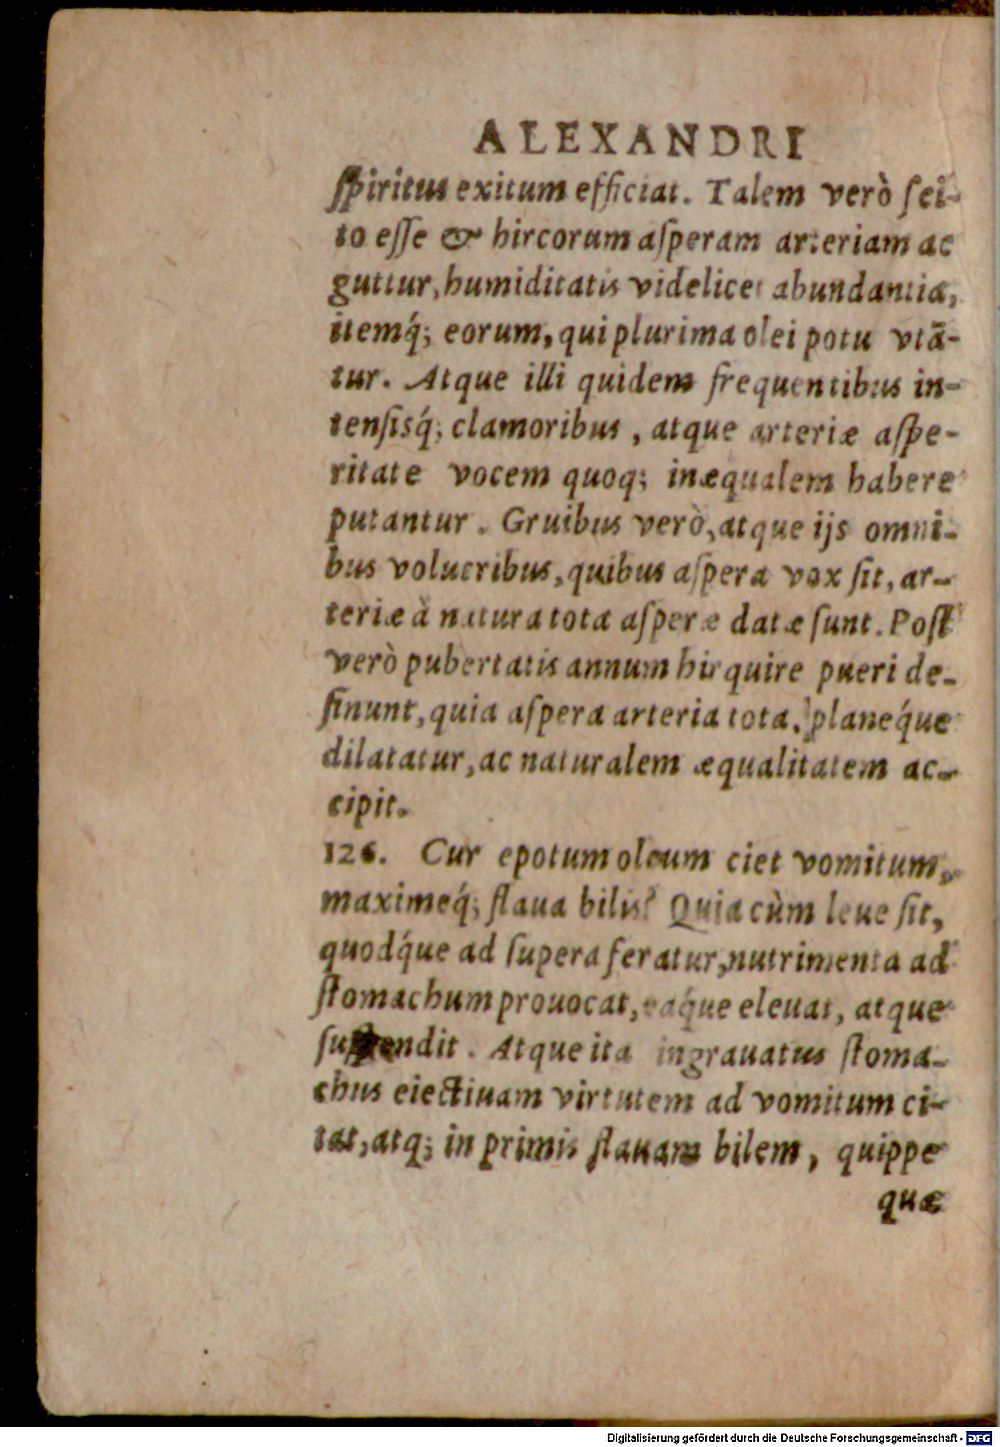 ALEXANDRI
ſpiritus exitum efficiat. Talem verò ſci-
to eſſe & hircorum aſperam arteriam ac
guttur, humiditatis videlicet abundantia,
itemq́; eorum, qui plurima olei potu vtã-
tur. Atque illi quidem frequentibus in-
tenſisq́; clamoribus, atque arteriæ aſpe-
ritate vocem quoq; inæqualem habere
putantur. Gruibus verò, atque ijs omni-
bus volucribus, quibus aſpera vox ſit, ar-
teriæ à natura tota aſperæ datæ ſunt. Poſt
verò pubertatis annum hirquire pueri de-
ſinunt, quia aſpera arteria tota, planeq́ue
dilatatur, ac naturalem æqualitatem ac-
cipit.
126. Cur epotum oleum ciet vomitum,
maximeq́; flaua bilis? Quia cùm leue ſit,
quodq́ue ad ſupera feratur, nutrimenta ad
ſtomachum prouocat, eaq́ue eleuat, atque
ſuſpendit. Atque ita ingrauatus ſtoma-
chus eiectiuam virtutem ad vomitum ci-
tat, atq; in primis flauam bilem, quippe
quæ
Digitalisierung gefördert durch die Deutsche Forschungsgemeinschaft - DFG